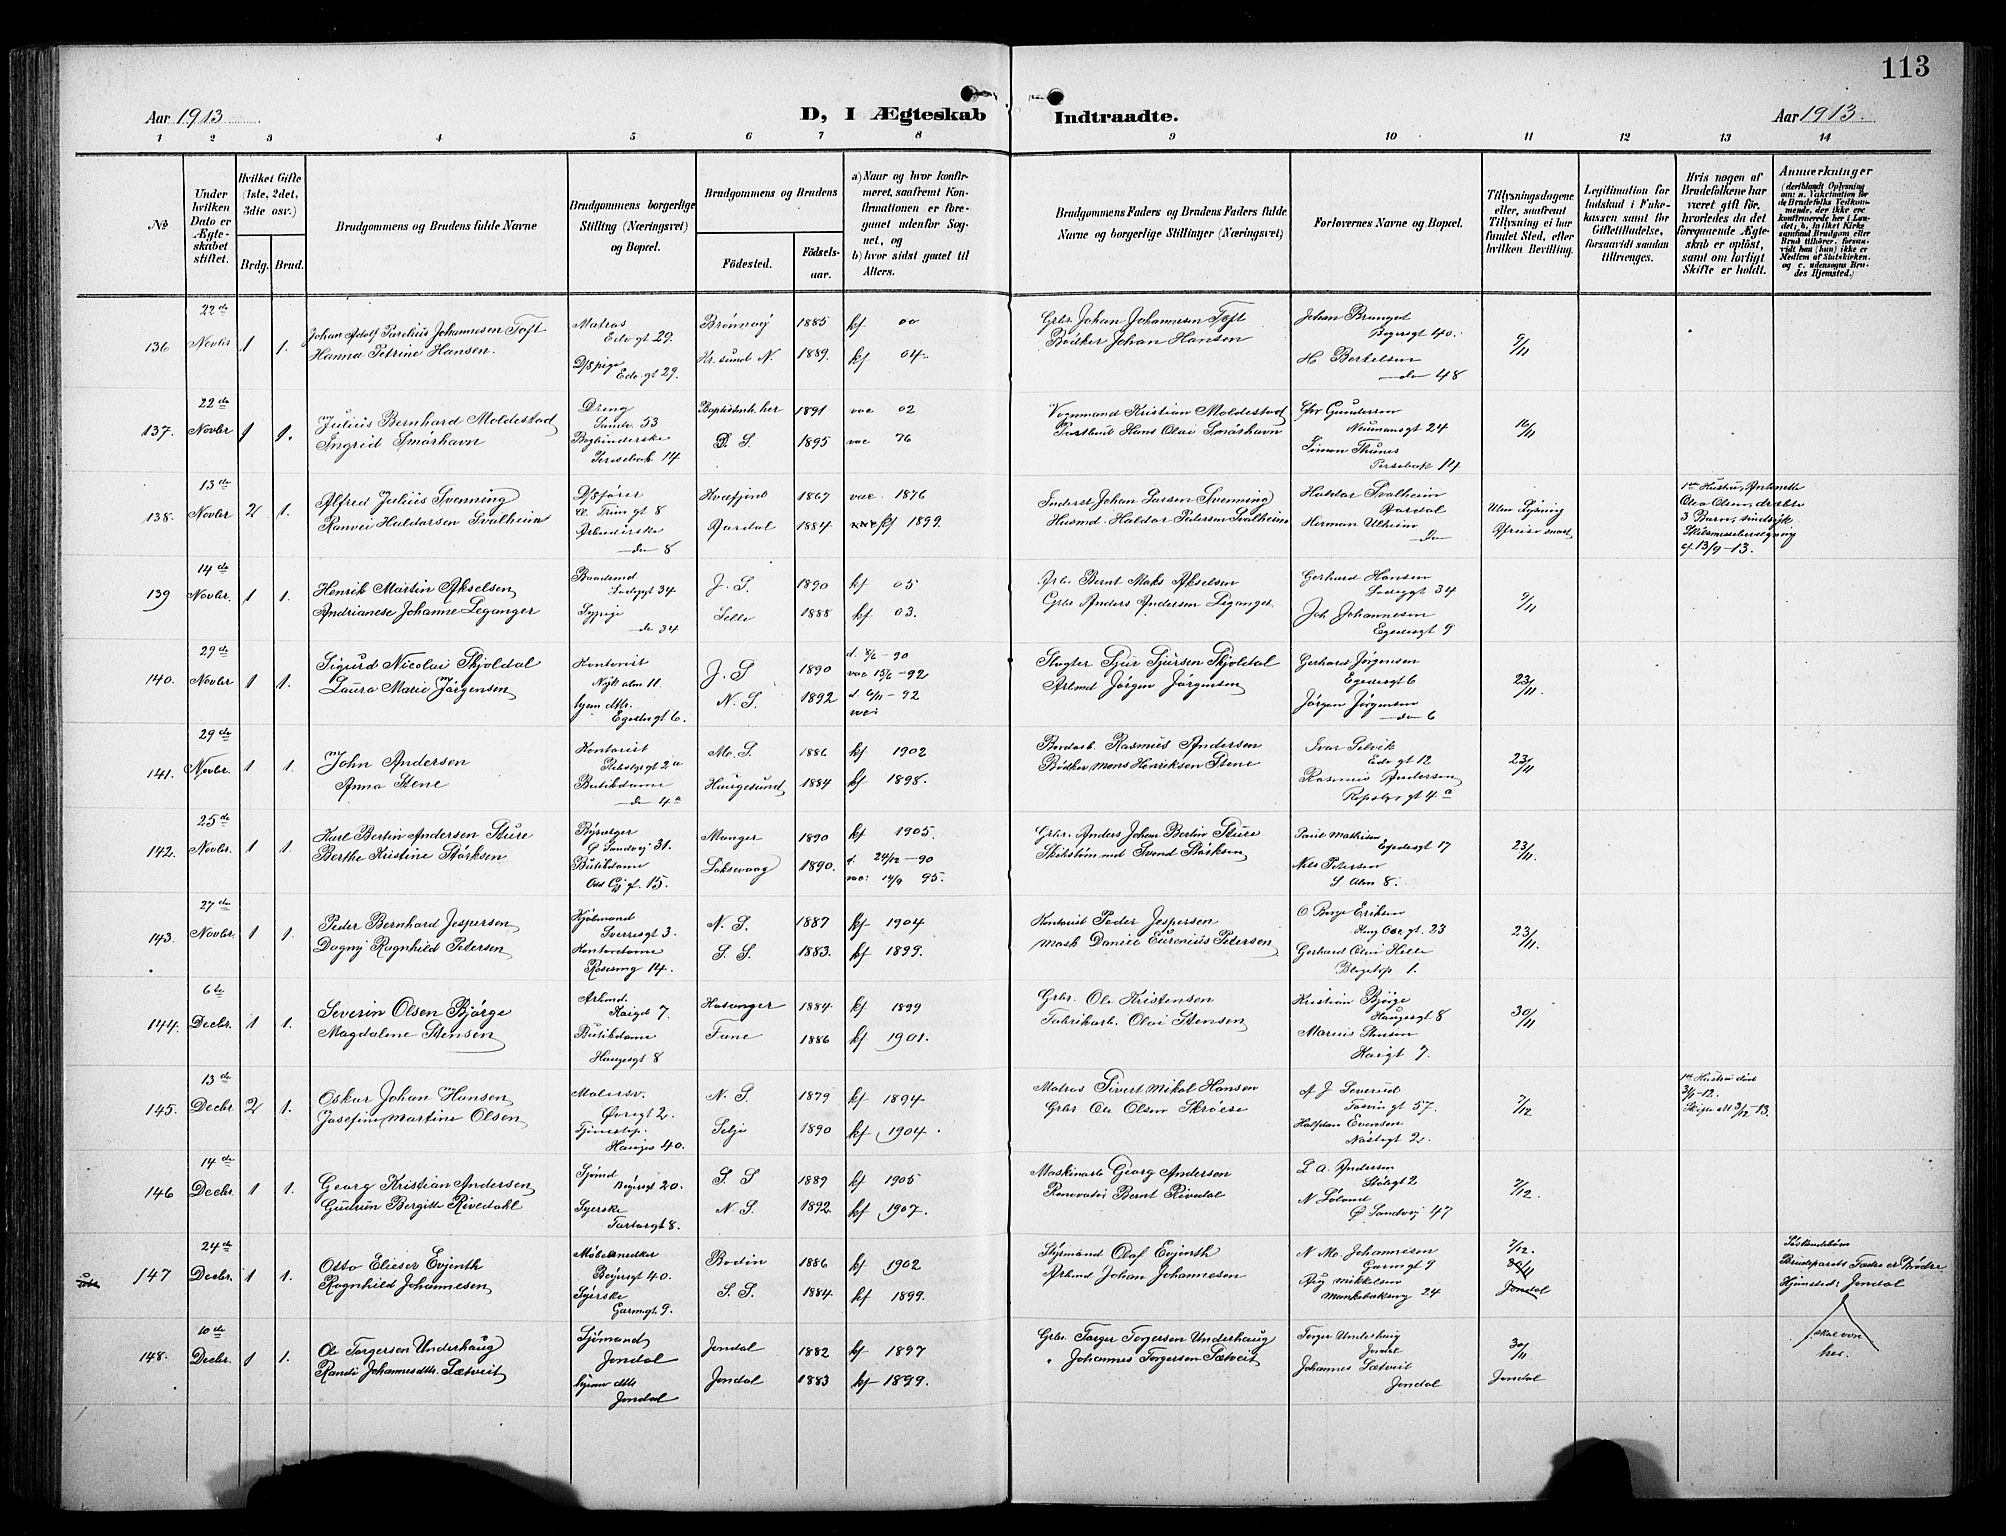 113
Aar 1913
D, I Ægteskab Indtraadte.
Aar 1913.
1 2 3 4 5 6 7 8 9 10 11 12 13 14
№
Under hvilken Dato er Ægteskabet stiftet.
Hvilket Gifte (1ste, 2det, 3die osv.)
Brdg. Brud.
Brudgommens og Brudens fulde Navne
Brudgommens borgerlige Stilling (Næringsvei) og Bopæl.
Brudgommens og Brudens
Fødested.
Fødselsaar.
a) Naar og hvor konfirmeret, saafremt Konfirmationen er foregaaet udenfor Sognet, og
b) hvor sidst gaaet til Alters.
Brudgommens Faders og Brudens Faders fulde Navne og borgerlige Stillinger (Næringsvei)
Forlovernes Navne og Bopæl.
Tillysningsdagene eller, saafremt Tillysning ei har fundet Sted, efter hvilken Bevilling.
Legitimation for Indskud i Enkekassen samt for Giftetilladelse, forsaavidt saadan tiltrænges.
Hvis nogen af Brudefolkene har været gift før, hvorledes da det foregaaende Ægteskab er opløst, samt om lovligt Skifte er holdt.
Anmærkninger
136 22de Novbr 1 1.
Johan Adolf Parelius Johannesen Toft
Hanna Petrine Hansen.
Matros
Edv gt 29.
Brønnøy 1885 kf 00
Edv. gt 29.
Kr. sund N. 1889 kf 04
Grbr. Johan Johannesen Toft
Bødker Johan Hansen
H Berkelsen
do 48
9/11
137. 22de Novbr 1 1.
Julius Bernhard Moldestad
Ingrid Smørhavn
Dreng
Sandv. 53
1891 vac 02
14
1895 vac 96
Vognmand Kristian Moldestad
Postbud Hans Olai Smørhavn
Neumansgt 24
Simon Thunes
14
16/11
138. 13de Novbr 2 1.
Alfred Julius Svenning
Ranvei Haldorsen Svalheim
Kvæfjord 1867 vac. 1876
Arbeiderske
do 8
Aardal 1884 kf 1899
Inderst Johan Larsen Svenning
Husmd. Haldor Pedersen Svalheim
Haldor Svalheim
Aardal
Herman Ulheim
do
Uten Lysning
3 Barn, sindsyk
13/9-13.
139 14de Novbr. 1 1.
Henrik Martin Akselsen
Andrianese Johanne Leganger
34
J. S. 1890 kf 05
Sypige
do 34
Selle 1888 kf 03.
Arb. Bernt Maks Akselsen
Grbr Anders Andersen Leganger
Gerhard Hansen
34
Joh Johannesen
Egedesgt 9
9/11
140. 29de Novbr 1 1.
Sigurd Nicolai Skjoldal
Laura Marie Jørgensen
Kontorist
Nyk alm 11.
J. S 1890
d. 8/6 - 90
vac 15/6 - 92
hjem dttr.
Egedesgt 6.
N. S. 1892
d. 6/11 - 92
Slagter Sjur Sjursen Skjoldal
Arbmd Jørgen Jørgensen
Gerhard Jørgensen
Egedesgt 6
Jørgen Jørgensen
do 6
23/11.
141. 29de Novbr. 1 1.
John Andersen
Anna Stene
Kontorist
M. S. 1886 kf 1902
Butikdame
do 4a
Haugesund 1884 kf 1898.
Bundarb. Rasmus Andersen
Bødker Mons Henriksen Stene
Ivar Selvik
Edv gt 12
Rasmus Andersen
Repslg. gt 4a
23/11
142. 25de Novbr. 1 1.
Karl Bertin Andersen Sture
Berthe Kristine Størksen
Ø Sandvej 31.
Manger 1890 kf 1905.
Butikdame
15.
Laksevaag 1890.
d. 24/12 - 90
vac: 14/9 95.
Grbr. Anders Johan Bertin Sture
Skibstømmd Svend Størksen
Paul Mathisen
Egedesgt 17
Nils Petersen
S. Alm 8.
23/11.
143. 27de Novbr. 1 1.
Peder Bernhard Jespersen
Dagny Ragnhild Petersen
Kjøbmand
Sverresgt 3.
N. S. 1887 kf 1904
Kontordame
14.
S. S. 1883. kf 1899.
Kontorist Peder Jespersen
Mask Daniel Eurenius Petersen
O. Børge Eriksen
23
Gerhard Olai Helle
1.
23/11.
144. 6te Decbr. 1 1.
Severin Olsen Bjørge
Magdalene Stensen
Arbmd.
Kaigt 7.
Hosanger 1884 kf 1899
Butikdame
Haugesgt 8
Fane 1886 kf 1901.
Grbr. Ole Kristensen
Fabrikarb. Olai Stensen
Kristian Bjørge
Haugesgt 8
Marius Stensen
Kaigt 7.
30/11
145. 13de Decbr 2 1.
Oskar Johan Hansen
Josefine Martine Olsen
Malersv.
Øvregt 2.
N. S. 1879 kf 1894
Tjenestep.
Hauges 40.
Selje 1890 kf 1904.
Matros Sivert Mikal Hansen
Grbr Ole Olsen Skrøese
A J Severud
57.
Halfdan Evensen
Nøstegt 2.
7/12
1ste Hustru død
3/1-12.
3/12-13.
146 14de Decbr. 1 1.
Georg Kristian Andersen
Gudrun Bergitte Rivedahl
Sjømd
Beyersgt 20.
S. S 1889 kf 1905
Syerske
Tartargt 8.
N. S. 1892 kf 1907.
Maskinarb Georg Andersen
Renovatør Bernt Rivedal
L A. Andersen
Stølegt 2
N Løland
Ø Sandvej 47
7/12.
147 24de Decbr. 1 1.
Otto Elieser Evjenth
Ragnhild Johannesen
Møbelsnedker
Beyersgt 40.
Bodin 1886 kf 1902
Syerske
Garmgt 9.
S. S. 1884 kf 1899.
Styrmand Olaf Evjenth
Arbmd Johan Johannesen
N M. Johannesen
Garmgt 9
Mikkelsen
24
7/12.
30/11
Jondal
Søskendebørn
Brudeparets Fædre er Brødre
Hjemsted: Jondal
148. 10de Decbr. 1 1.
Ole Torgersen Underhaug
Randi Johannesdttr. Sætveit
Sjømand
Jondal
Jondal 1882 kf 1897
hjem dttr
Jondal
Jondal 1883 kf 1899.
Grbr. Torger Torgersen Underhaug
" Johannes Torgersen Sætveit
Torger Underhaug
Jondal
Johannes Sætveit
Jondal
30/11
Jondal
skal over her.